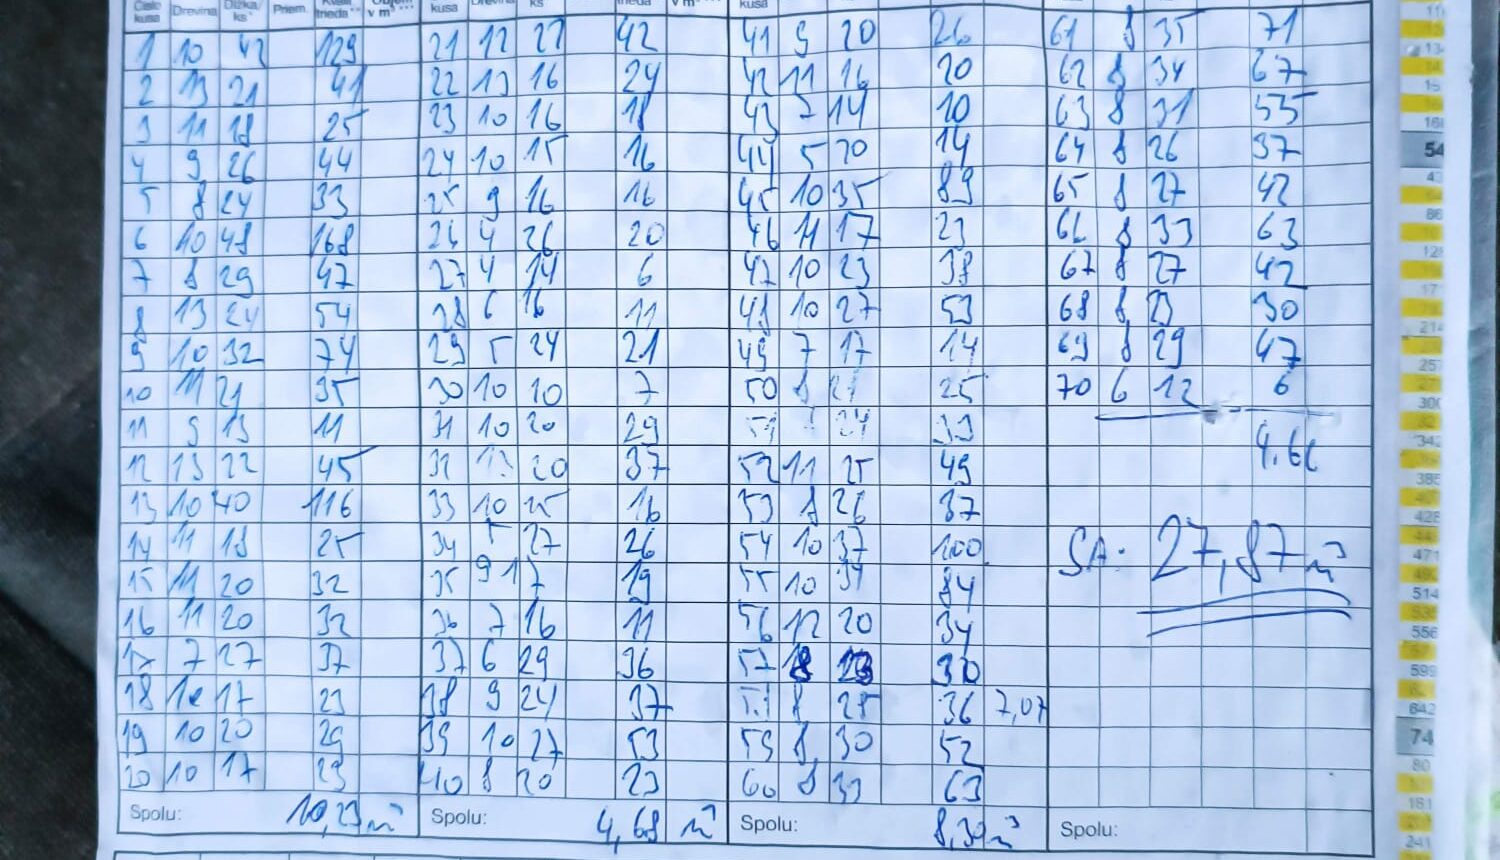 Číslo kusa Drevina Dĺžka/ks Priem. trieda** v m³*** kusa ks trieda v m³ kusa
1 10 42 129 21 12 27 42 41 9 20 26 61 8 35 71
2 13 21 41 22 13 16 24 42 11 16 20 62 8 34 67
3 11 18 25 23 10 16 18 43 7 14 10 63 8 31 55
4 9 26 44 24 10 15 16 44 5 20 14 64 8 26 37
5 8 24 33 25 9 16 16 45 10 35 89 65 8 27 42
6 10 48 168 26 4 26 20 46 11 17 23 66 8 33 63
7 8 29 47 27 4 14 6 47 10 23 38 67 8 27 42
8 13 24 54 28 6 16 11 48 10 27 53 68 8 23 30
9 10 32 74 29 5 24 21 49 7 17 14 69 8 29 47
10 11 21 35 30 10 10 7 50 8 21 25 70 6 12 6
11 9 13 11 31 10 20 29 51 24 33 4,66
12 13 22 45 32 13 20 37 52 11 25 49
13 10 40 116 33 10 15 16 53 8 26 37
14 11 18 25 34 5 27 26 54 10 37 100 SA: 27,87 m³
15 11 20 32 35 9 17 19 55 10 34 84
16 11 20 32 36 7 16 11 56 12 20 34
17 7 27 37 37 6 29 36 57 8 23 30
18 10 17 23 38 9 24 37 58 8 25 36 7,07
19 10 20 29 39 10 27 53 59 8 30 52
20 10 17 23 40 8 20 23 60 8 33 63
Spolu: 10,23 m³ Spolu: 4,68 m³ Spolu: 8,30 m³ Spolu: